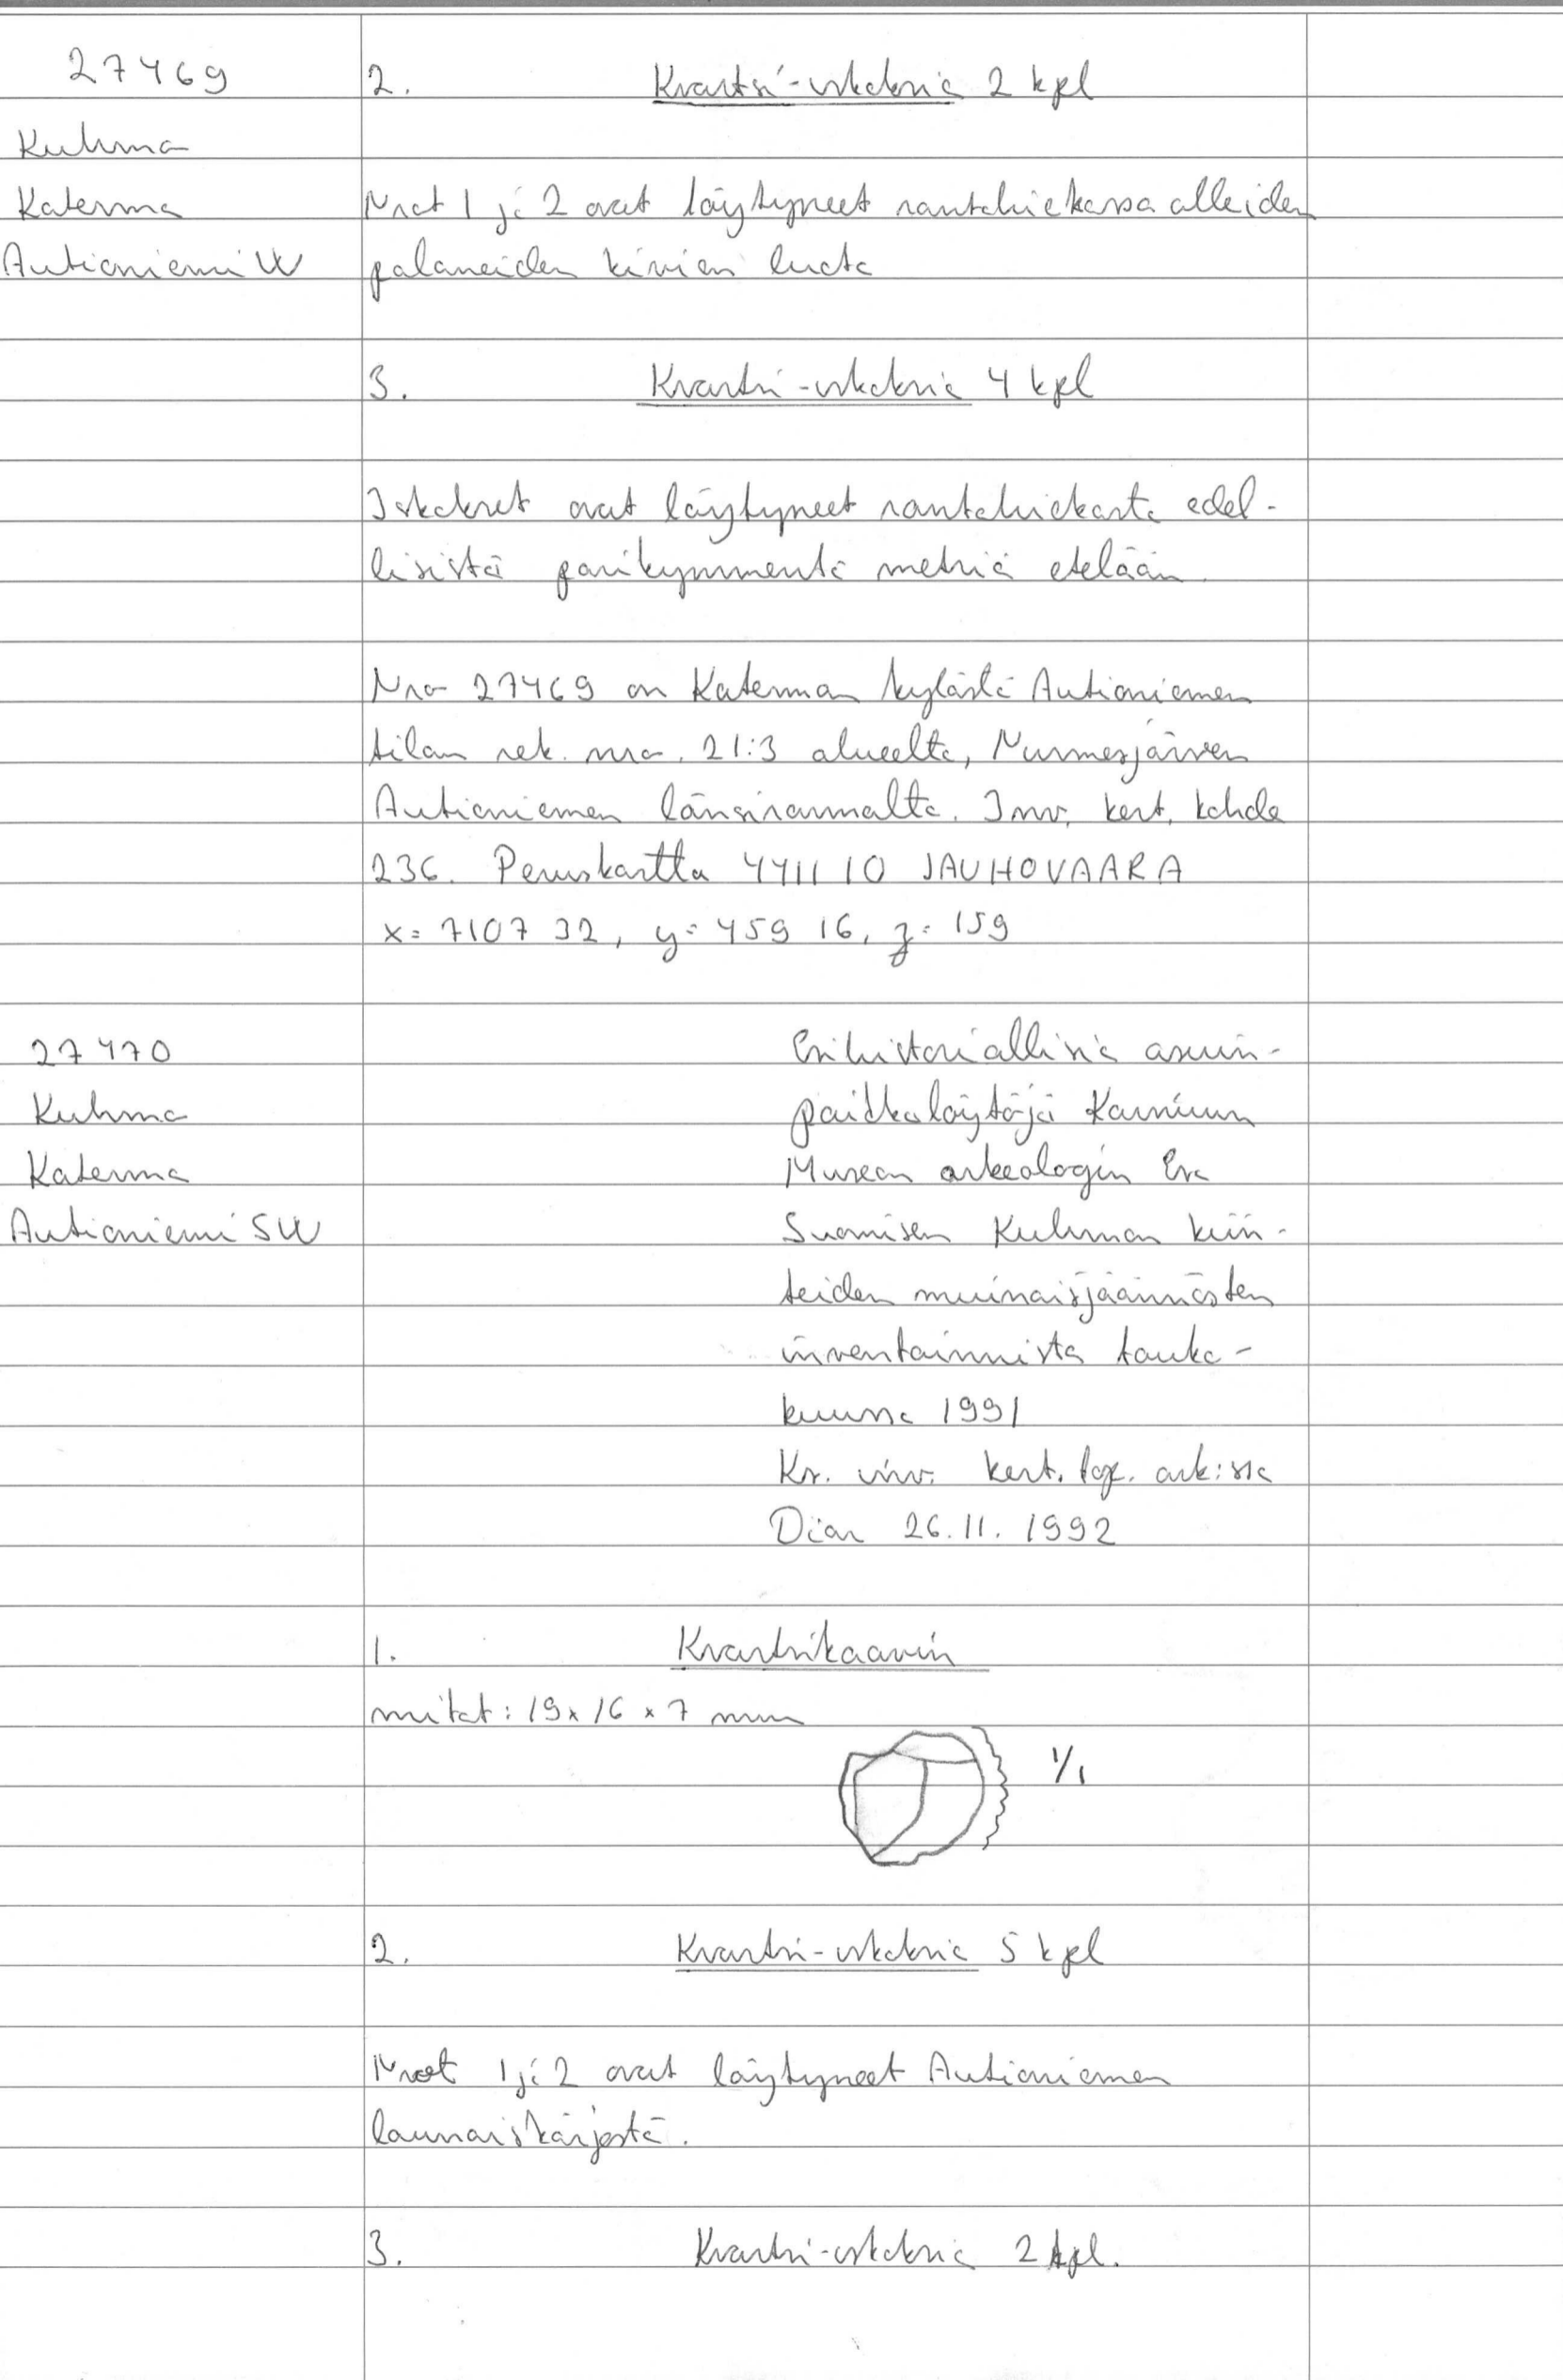 27469
2. Kvartsi-iskoksia 2 kpl
Kuhmo
Katerma
Nrot 1 ja 2 ovat löytyneet rantahiekassa olleiden
Autioniemi W
palaneiden kivien luota
3. Kvartsi-iskoksia 4 kpl
Iskokset ovat löytyneet rantahiekasta edel-
lisistä parikymmentä metriä etelään.
Nro 27469 on Katerman kylästä Autioniemen
tilan rek. nro. 21:3 alueelta, Nurmesjärven
Autioniemen länsirannalta. Inv. kert. kohde
236. Peruskartta 4411 10 JAUHOVAARA
x= 7107 32, y= 459 16, z= 159
27470
Kuhmo
Katerma
Autioniemi SW
Esihistoriallisia asuin-
paikkalöytöjä Kainuun
Museon arkeologin Esa
Suomisen Kuhmon kiin-
teiden muinaisjäännösten
inventoinnista touko-
kuussa 1991
Ks. inv. kert. top. ark:ssa
Diar 26.11.1992
1. Kvartsikaavin
mitat: 19 x 16 x 7 mm
1/1
2. Kvartsi-iskoksia 5 kpl
Nrot 1 ja 2 ovat löytyneet Autioniemen
lounaiskärjestä.
3. Kvartsi-iskoksia 2 kpl.